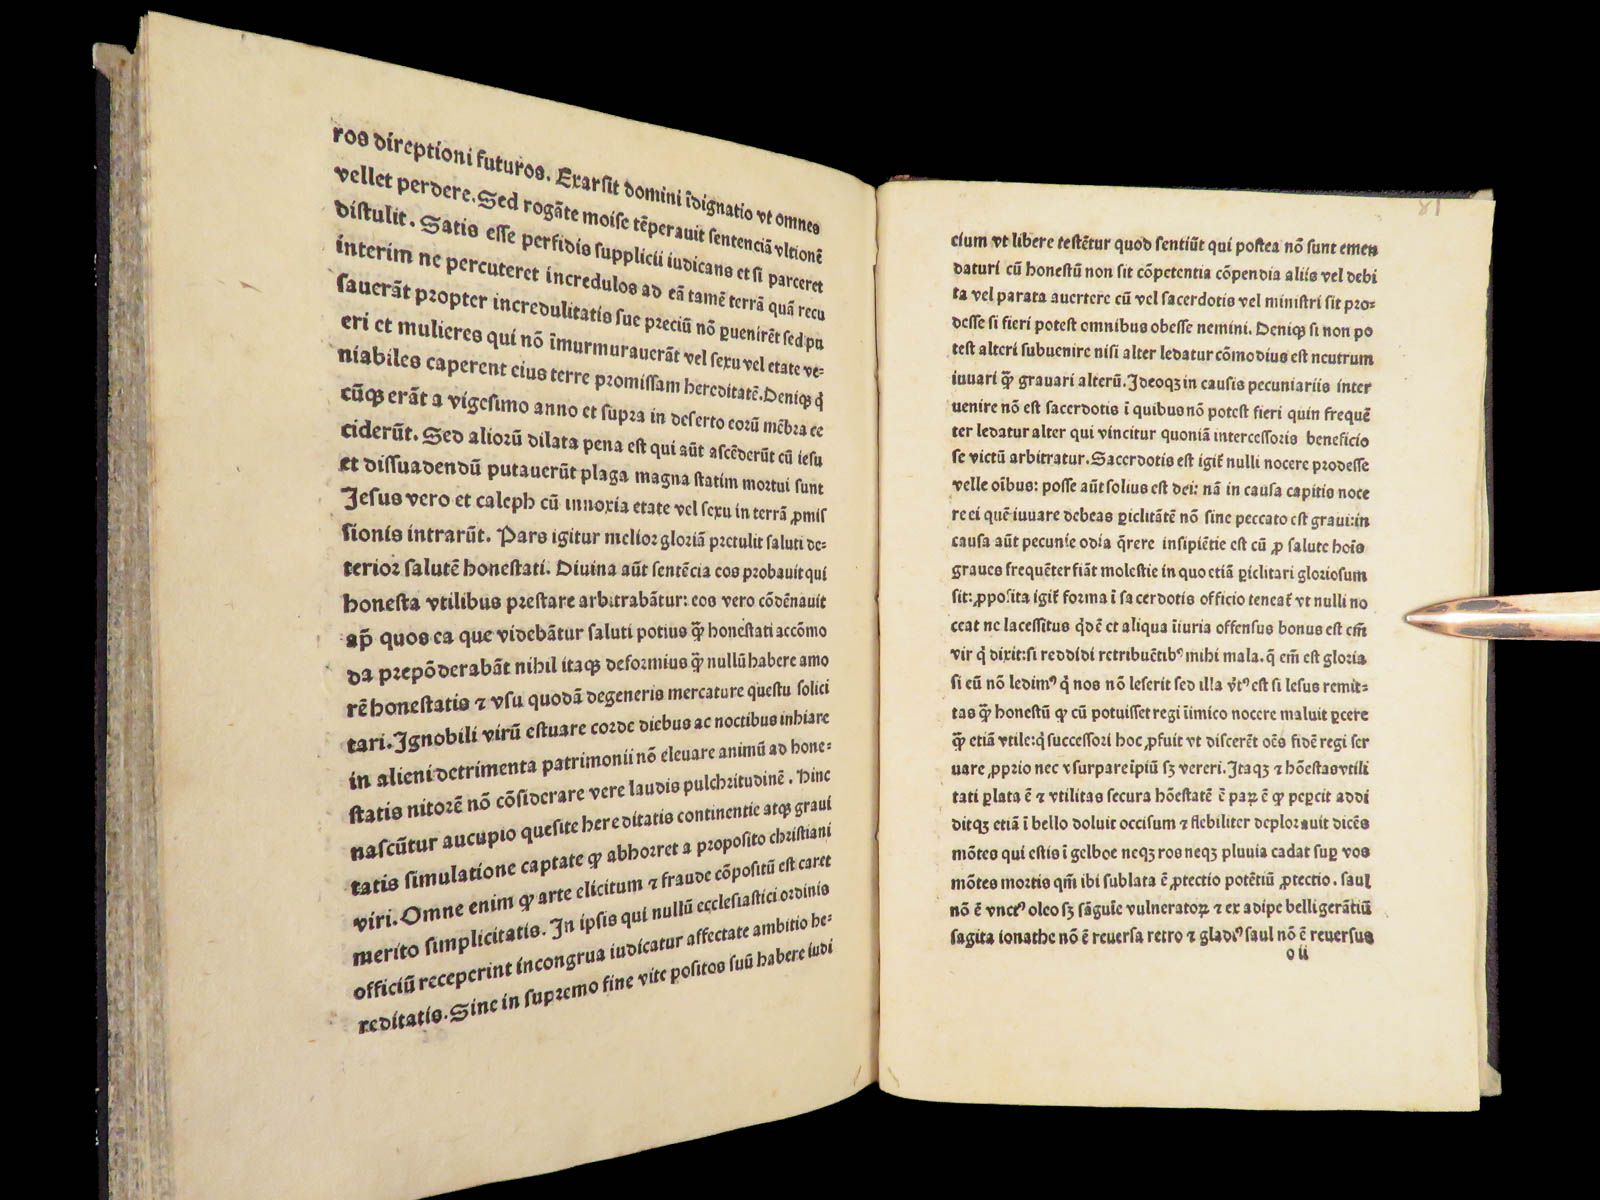 ros direptioni futuros. Exarsit domini īdignatio vt omnes
vellet perdere. Sed rogāte moise tēperauit sentenciā vltionē
distulit. Satis esse perfidis supplicii iudicans et si parceret
interim ne percuteret incredulos ad eā tamē terrā quā recu
sauerāt propter incredulitatis sue preciū nō ꝑuenirēt sed pu
eri et mulieres qui nō īmurmurauerāt vel sexu vel etate ve=
niabiles caperent eius terre promissam hereditatē. Deniqꝫ q̇
cūqꝫ erāt a vigesimo anno et supra in deserto eorū mēbra ce
ciderūt. Sed aliorū dilata pena est qui aūt ascēderūt cū iesu
et dissuadendū putauerūt plaga magna statim mortui sunt
Jesus vero et caleph cū innoxia etate vel sexu in terrā ꝓmis
sionis intrarūt. Pars igitur melior gloriā pretulit saluti de=
terior salutē honestati. Diuina aūt sentēcia eos probauit qui
honesta vtilibus prestare arbitrabātur: eos vero cōdēnauit
ap̄ quos ea que videbātur saluti potius q̄ꝫ honestati accōmo
da prepōderabāt nihil itaqꝫ deformius q̄ꝫ nullū habere amo
rē honestatis ⁊ vsu quodā degeneris mercature questu solici
tari. Ignobili virū estuare corde diebus ac noctibus inhiare
in alieni detrimenta patrimonii nō eleuare animū ad hone=
statis nitorē nō cōsiderare vere laudis pulchritudinē. Hinc
nascūtur aucupio quesite hereditatis continentie atqꝫ graui
tatis simulatione captate qꝫ abhorret a proposito christiani
viri. Omne enim qꝫ arte elicitum ⁊ fraude cōpositū est caret
merito simplicitatis. In ipsis qui nullū ecclesiastici ordinis
officiū receperint incongrua iudicatur affectate ambitio he=
reditatis. Sine in supremo fine vite positos suū habere iudi
81
cium vt libere testētur quod sentiūt qui postea nō sunt emen
daturi cū honestū non sit cōpetentia cōpendia aliis vel debi
ta vel parata auertere cū vel sacerdotis vel ministri sit pro=
desse si fieri potest omnibus obesse nemini. Deniqꝫ si non po
test alteri subuenire nisi alter ledatur cōmodius est neutrum
iuuari q̄ꝫ grauari alterū. Ideoqꝫ in causis pecuniariis inter
uenire nō est sacerdotis ī quibus nō potest fieri quin frequē
ter ledatur alter qui vincitur quoniā intercessoris beneficio
se victū arbitratur. Sacerdotis est igit̄ nulli nocere prodesse
velle oībus: posse aūt solius est dei: nā in causa capitis noce
re ei quē iuuare debeas ꝑiclitātē nō sine peccato est graui: in
causa aūt pecunie odia q̄rere insipiētie est cū ꝓ salute hoīs
graues frequēter fiāt molestie in quo etiā ꝑiclitari gloriosum
sit: ꝓposita igit̄ forma ī sacerdotis officio teneat̄ vt nulli no
ceat ne lacessitus q̇dē et aliqua īiuria offensus bonus est em̄
vir q̇ dixit: si reddidi retribuētibꝰ mihi mala. q̄ em̄ est gloria
si eū nō ledimꝰ q̇ nos nō leserit sed illa v̇tꝰ est si lesus remit=
tas q̄ꝫ honestū qꝫ cū potuisset regi īimico nocere maluit ꝑcere
q̄ꝫ etiā vtile: q̇ successori hoc ꝓfuit vt discerēt oēs fidē regi ser
uare ꝓprio nec vsurpare īpiū sꝫ vereri. Itaqꝫ ⁊ hōestas vtili
tati ꝑlata ē ⁊ vtilitas secura hōestatē ē paꝝ ē qꝫ peꝑcit addi
ditqꝫ etiā ī bello doluit occisum ⁊ flebiliter deplorauit dicēs
mōtes qui estis ī gelboe neqꝫ ros neqꝫ pluuia cadat suꝑ vos
mōtes mortis qm̄ ibi sublata ē ꝓtectio potētiū ꝓtectio. saul
nō ē vnctꝰ oleo sꝫ sāguīe vulneratoꝝ ⁊ ex adipe belligerātiū
sagita ionathe nō ē reuersa retro ⁊ gladiꝰ saul nō ē reuersus
o ii